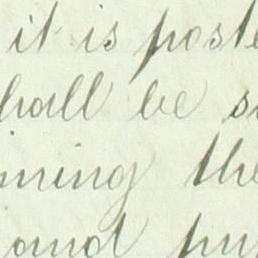 it is poste
hall be s
ning the
and pu